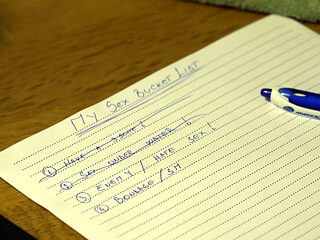 My Sex Bucket List
① Have a 3some!
② Sex under water!
③ Enemy / Hate sex!
④ Bondage / SM